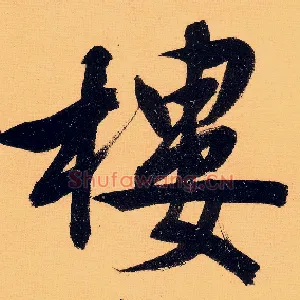 樓
Shufawang.CN